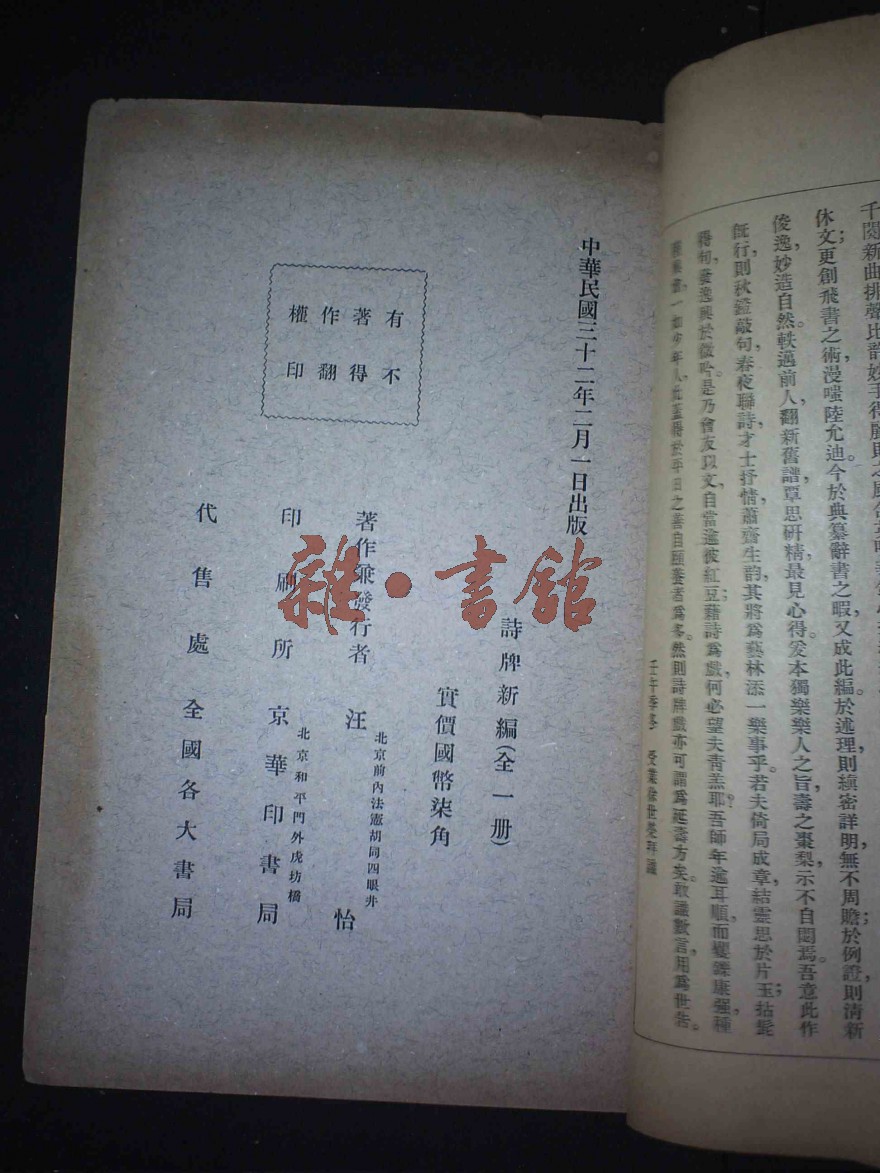 休文更創飛書之術漫嗤陸允迪今於典纂辭書之暇又成此編於述理則縝密詳明無不周贍於例證則清新
俊逸妙造自然軼邁前人翻新舊譜覃思研精最見心得爰本獨樂樂人之旨壽之棗梨示不自閟焉吾意此作
既行則秋燈敲句春夜聯詩才士抒情蕭齋生韵其將為藝林添一樂事乎若夫倚局成章結靈思於片玉拈髭
得句發逸興於微吟是乃會友以文自當逾彼紅豆藉詩為戲何必望夫青羔耶吾師年逾耳順而矍鑠康强種
一如少年人此蓋得於平日之善自頤養者為多然則詩牌戲亦可謂為延壽方矣敢識數言用為世告
壬午季冬 受業徐世榮拜識
中華民國三十二年二月一日出版
有著作權
不得翻印
詩牌新編(全一册)
實價國幣柒角
著作兼發行者 汪 怡
北京前內法憲胡同四眼井
印刷所 京華印書局
北京和平門外虎坊橋
代售處 全國各大書局
雜·書舘